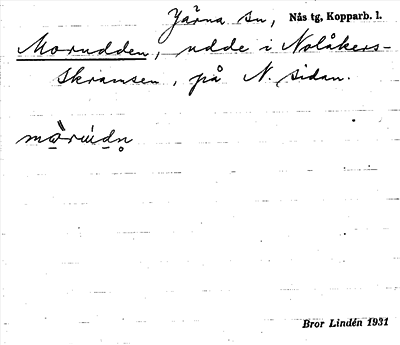 Järna sn, Nås tg, Kopparb. l.
Morudden, udde i Nolåkers-
skramsen, på N. sidan.
Bror Lindén 1931